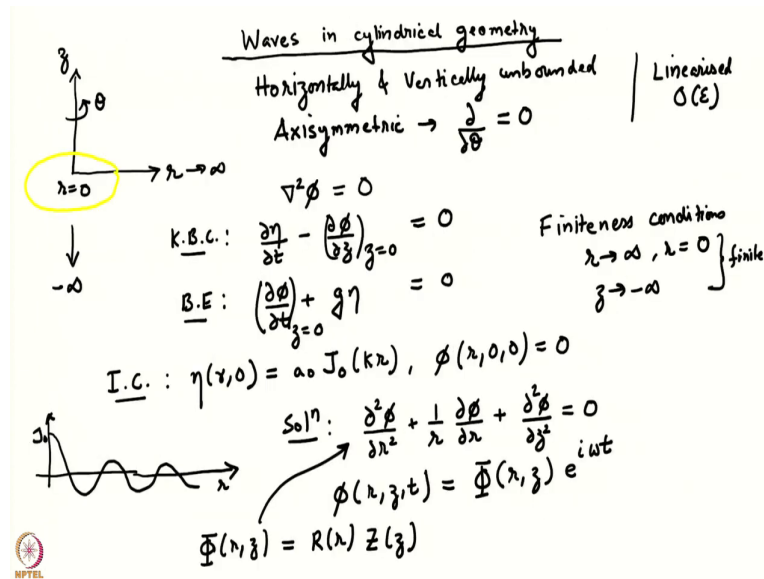 Waves in cylindrical geometry
Horizontally & Vertically unbounded
Axisymmetric → ∂/∂θ = 0
Linearised
O(ε)
z
θ
r → ∞
r=0
-∞
∇²φ = 0
K.B.C.: ∂η/∂t - (∂φ/∂z)_{z=0} = 0
B.E: (∂φ/∂t)_{z=0} + gη = 0
Finiteness conditions
r→∞, r=0
z→-∞
} finite
I.C.: η(r,0) = a₀ J₀(kr), φ(r,0,0) = 0
J₀
r
Solⁿ: ∂²φ/∂r² + 1/r ∂φ/∂r + ∂²φ/∂z² = 0
φ(r,z,t) = Φ(r,z) e^{iωt}
Φ(r,z) = R(r) Z(z)
NPTEL